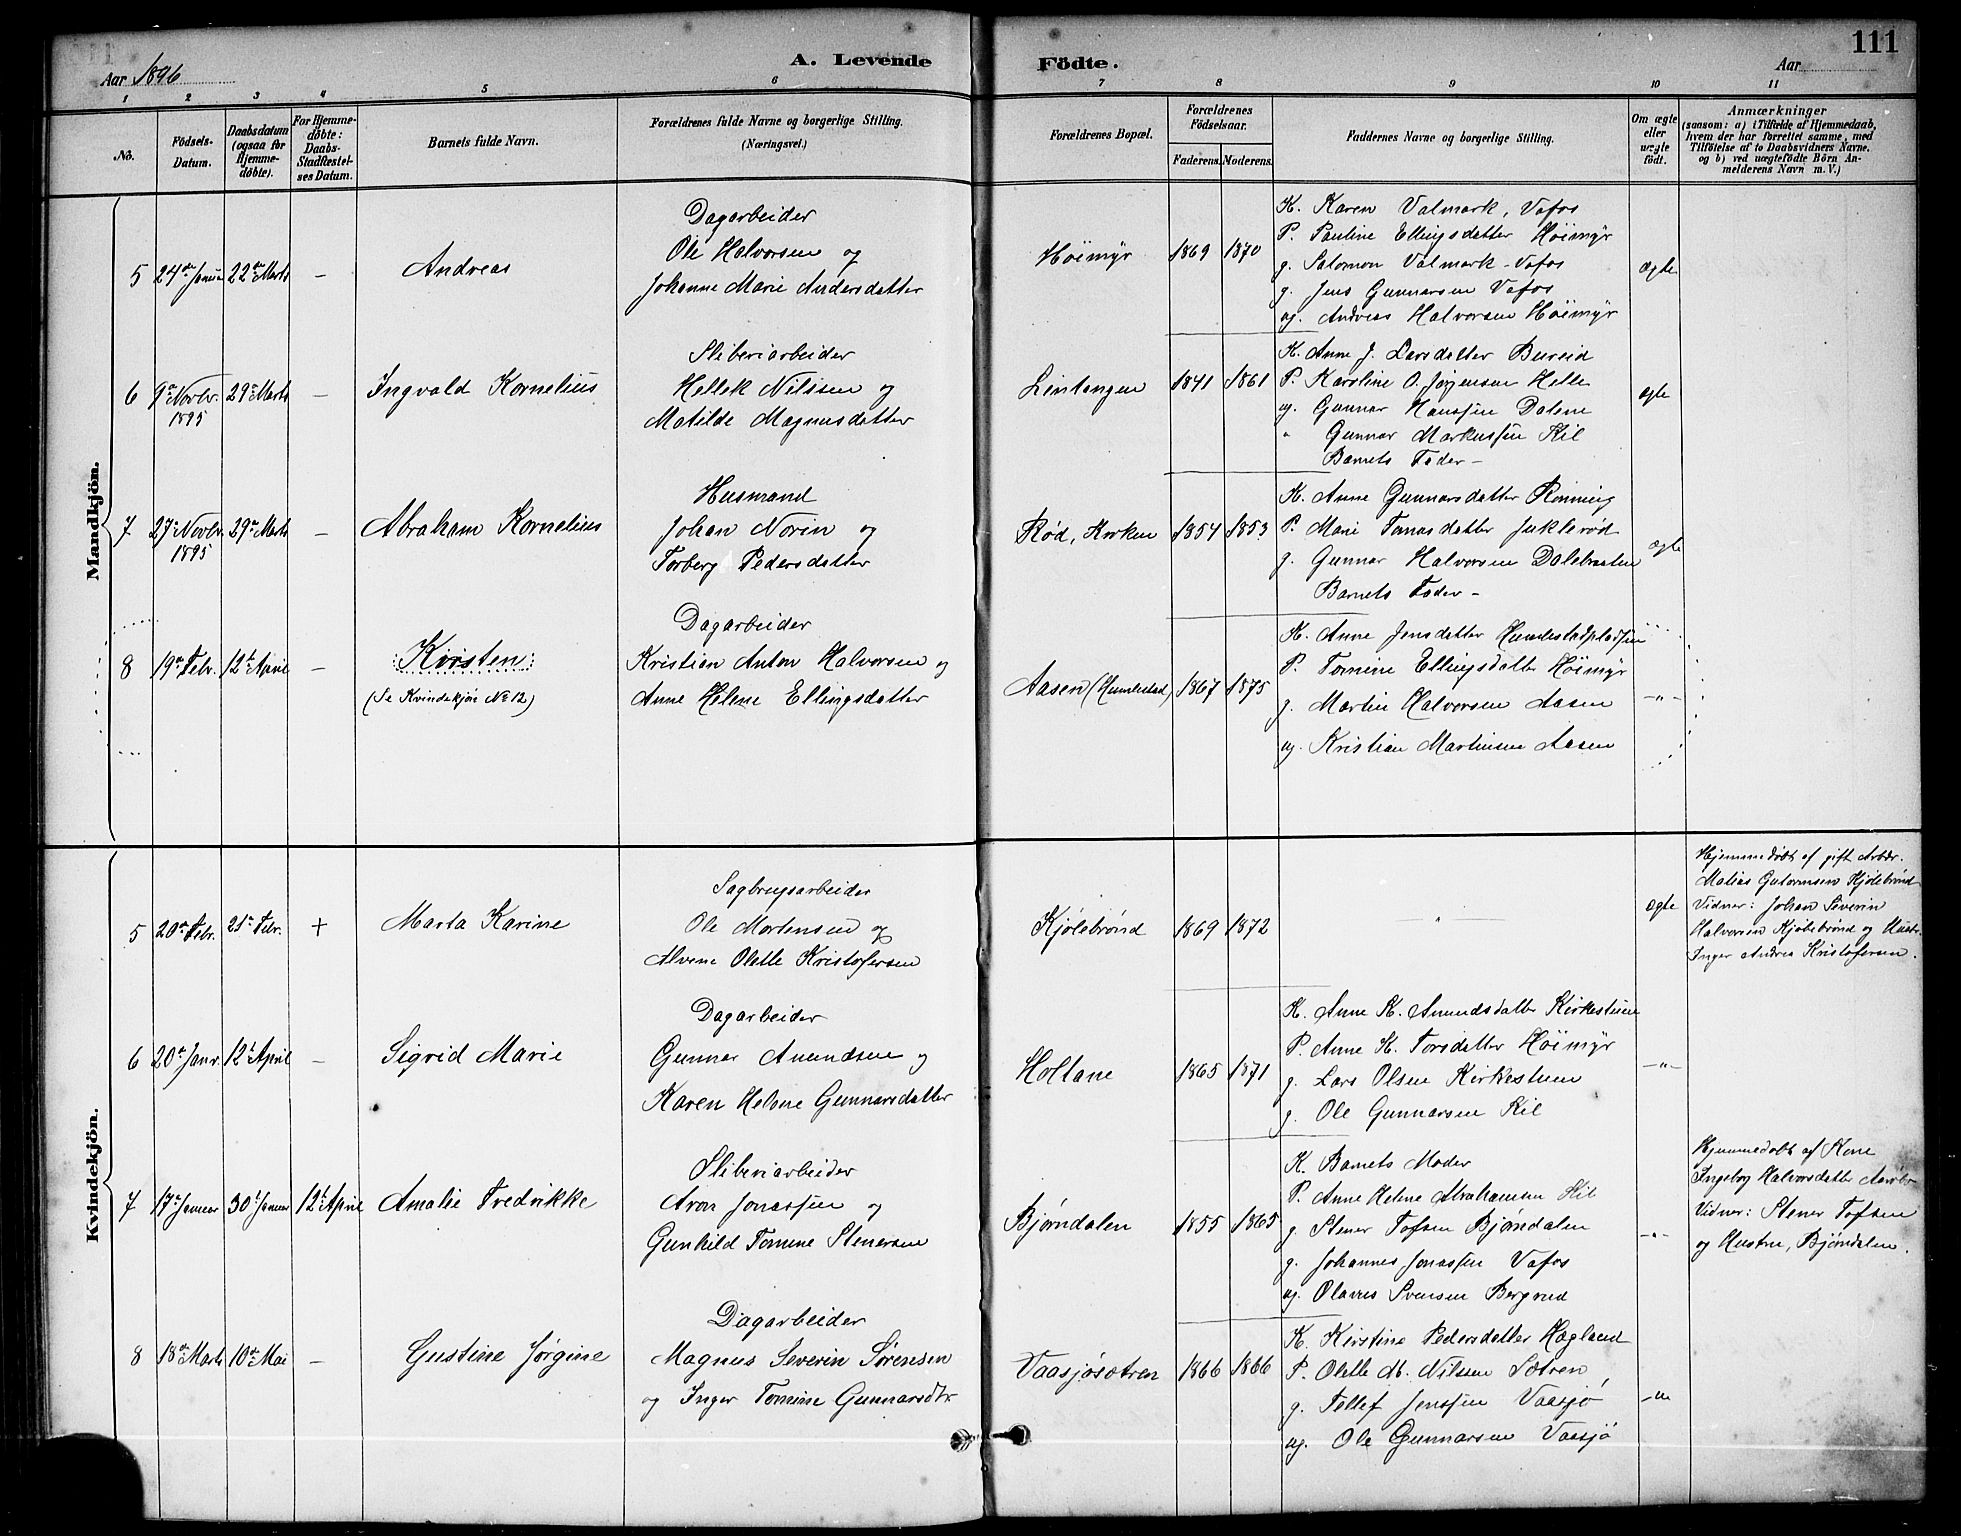 111
Aar 1896
A. Levende Födte.
Aar
1 2 3 4 5 6 7 8 9 10 11
No.
Födsels-Datum.
Daabsdatum (ogsaa for Hjemmedøbte).
For Hjemmedøbte: Daabs-Stadfæstelses Datum.
Barnets fulde Navn.
Forældrenes fulde Navne og borgerlige Stilling. (Næringsvei.)
Forældrenes Bopæl.
Forældrenes Födselsaar.
Faderens. Moderens.
Faddernes Navne og borgerlige Stilling.
Om ægte eller uægte født.
Anmærkninger
(saasom: a) i Tilfælde af Hjemmedaab, hvem der har forrettet samme, med Tilföielse af to Daabsvidners Navne. og b) ved uægtefödte Börn Anmelderens Navn m. V.)
Mandkjön.
5 24de Januar 22de Marts – Andreas
Dagarbeider
Ole Halvorsen og
Johanne Marie Andersdatter
Höimyr 1869 1870
K. Karen Valmark, Vafos
P. Pauline Ellingsdatter Höimyr
g. Salomon Valmark - Vafos
g. Jens Gunnarsen Vafos
ug. Andreas Halvorsen Höimyr
ægte
6 9de Novbr. 1895 29de Marts – Ingvald Kornelius
Sliberiarbeider
Hellek Nilssen og
Matilde Magnusdatter
Lintangen 1841 1861
K. Anne J. Larsdatter Bureid
P. Karoline O. Jørgensen Helle
ug. Gunnar Hanssen Dalene
" Gunnar Markussen Kil
Barnets Fader –
ægte
7 27de Novbr. 1895 29de Marts – Abraham Kornelius
Husmand
Johan Norin og
Torberg Pedersdatter
Rød, Kirken 1854 1853
K. Anne Gunnarsdatter Rönning
P. Marie Tomasdatter Juklerød
g. Gunnar Halvorsen Dalebraaten
Barnets Fader –
ægte
8 19de Febr. 12te April – Kirsten
(Se Kvindekjön No 12)
Dagarbeider
Kristian Anton Halvorsen og
Anne Helene Ellingsdatter
Aasen (Humlestad) 1867 1875
K. Anne Jensdatter Humlestadpladsen
P. Tomine Ellingsdatter Höimyr
g. Martin Halvorsen Aasen
ug. Kristian Martinsen Aasen
–"–
Kvindekjön.
5 20de Febr. 21de Febr. + Marta Karine
Sagbrugsarbeider
Ole Mortensen og
Alvene Olette Kristofersen
Kjölebrønd 1869 1872
"
ægte
Hjemmedøbt af gift Arbdr.
Matias Gutormsen Kjölebrønd
Vidner: Johan Severin
Halvorsen Kjölebrønd og Hustr.
Inger Andrea Kristofersen.
6 20de Janr. 12te April – Sigrid Marie
Dagarbeider
Gunnar Amundsen og
Karen Helene Gunnarsdatter
Holtane 1865 1871
K. Anne K. Amundsdatter Kirkestuen
P. Anne K. Torsdatter Höimyr
g. Lars Olsen Kirkestuen
g. Ole Gunnarsen Kil
–"–
7 17de Januar 30te Januar 12te April Amalie Fredrikke
Sliberiarbeider
Aron Jonassen og
Gunhild Tomine Stenersen
Bjørndalen 1855 1865
K. Barnets Moder
P. Anne Helene Abrahamsen Kil
g. Stener Tofsen Bjørndalen
g. Johannes Jonassen Vafos
ug. Olaves Svensen Bergrud
–"–
Hjemmedøbt af Kone
Ingeborg Halvorsdatter
Vidner: Stener Tofsen
og Hustru, Bjørndalen.
8 18de Marts 10de Mai – Gustine Jørgine
Dagarbeider
Magnus Severin Sørensen
og Inger Tomine Gunnarsdtr.
Vaasjøsætren 1866 1866
K. Kirstine Pedersdatter Hagland
P. Olette M. Nilssen Sætren
g. Tellef Jenssen Vaasjø
ug. Ole Gunnarsen Vaasjø
–"